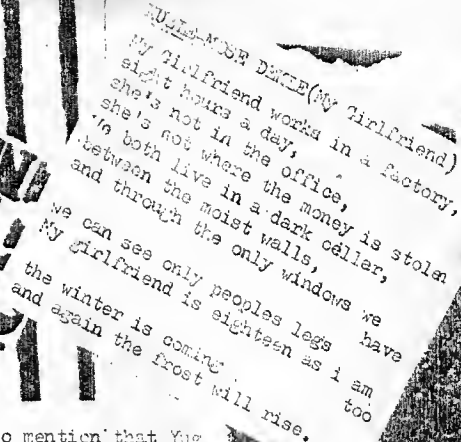 (My Girlfriend)
My Girlfriend works in a factory,
eight hours a day,
she's not in the office,
she's not where the money is stolen
We both live in a dark celler,
between the moist walls,
and through the only windows we
have
we can see only peoples legs
My girlfriend is eighteen as i am
too
the winter is coming
and again the frost will rise.
o mention that Yug